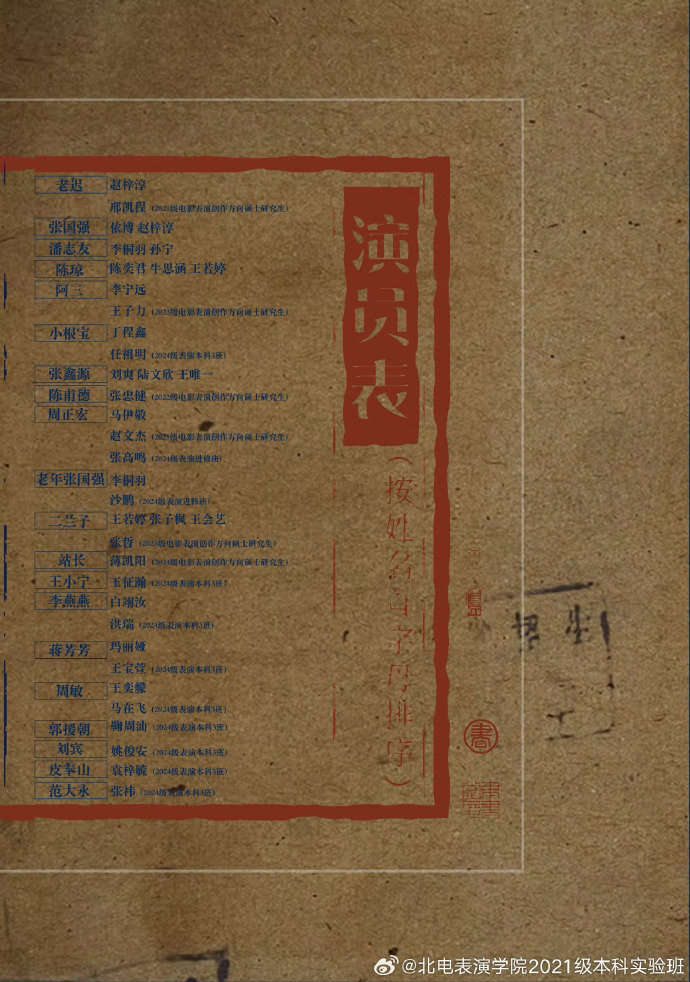 演员表
(按姓名首字母排序)
老迟 赵梓淳
邢凯程 (2023级电影表演创作方向硕士研究生)
张国强 依博 赵梓淳
潘志友 李桐羽 孙宁
陈琼 陈奕君 牛思涵 王若婷
阿三 李宁远
王子力 (2023级电影表演创作方向硕士研究生)
小根宝 丁程鑫
任祖明 (2024级表演本科3班)
张鑫源 刘爽 陆文欣 王唯一
陈甫德 张忠健 (2022级电影表演创作方向硕士研究生)
周正宏 马伊敬
赵文杰 (2023级电影表演创作方向硕士研究生)
张高鸣 (2024级表演进修班)
老年张国强 李桐羽
沙鹏 (2024级表演进修班)
二兰子 王若婷 张子枫 王会艺
张哲 (2023级电影表演创作方向硕士研究生)
站长 薄凯阳 (2024级电影表演创作方向硕士研究生)
王小宁 王征瀚 (2024级表演本科3班)
李燕燕 白翊汝
洪瑞 (2024级表演本科3班)
蒋芳芳 玛丽娅
王宝萱 (2024级表演本科3班)
周敏 王奕朦
马在飞 (2024级表演本科3班)
郭援朝 鞠周油 (2024级表演本科3班)
刘宾 姚俊安 (2024级表演本科3班)
皮奉山 袁梓毓 (2024级表演本科3班)
范大永 张祎 (2024级表演本科3班)
書
@北电表演学院2021级本科实验班